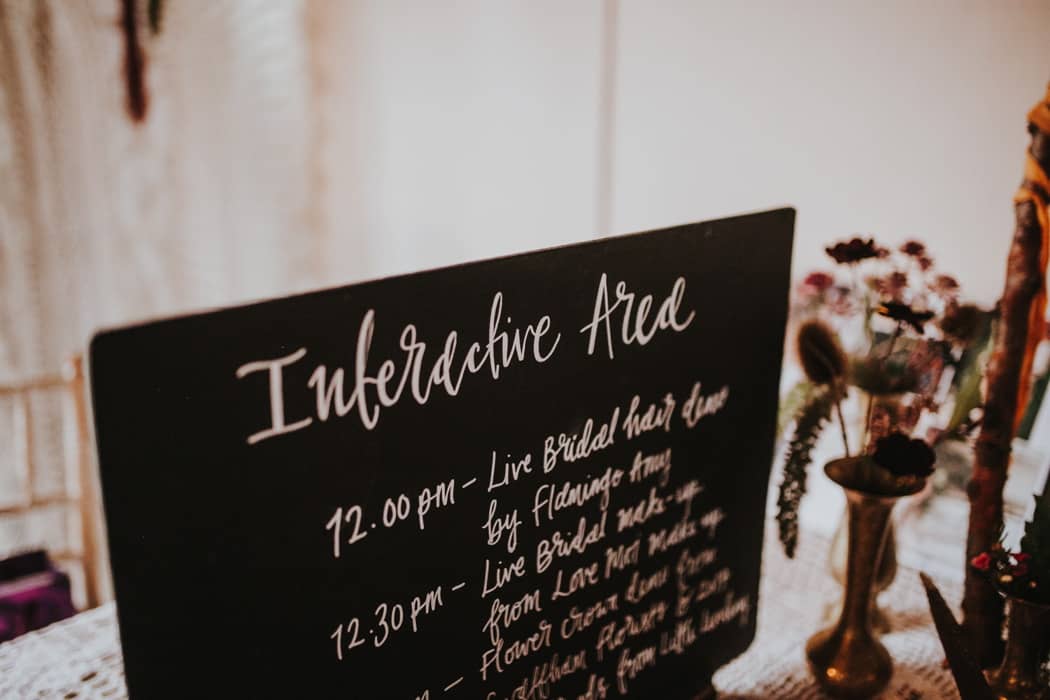 Interactive Area
12.00 pm - Live Bridal hair demo
by Flamingo Amy
12.30 pm - Live Bridal make-up
from Love Moi make up
pm - Flower crown demo from
Flowers &
from